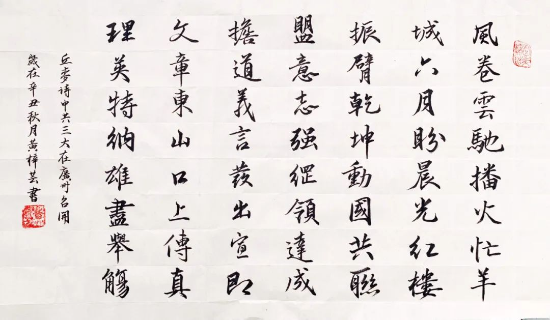 風卷雲馳播火忙羊
城六月盼晨光紅樓
振臂乾坤動國共聯
盟意志强綱領達成
擔道義言發出宣即
文章東山口上傳真
理英特納雄盡舉觴
丘麥诗中共三大在廣州召開
歲在辛丑秋月黄梓芸書